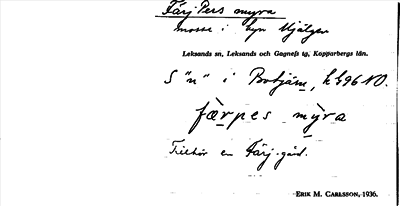 Färj Pers myra
mosse i byn Hjälgen
Leksands sn, Leksands och Gagnefs tg, Kopparbergs län.
S "n" i , k 596 NO.
færpes mỳra
Tillhör en Färj-gård.
ERIK M. CARLSSON, 1936.